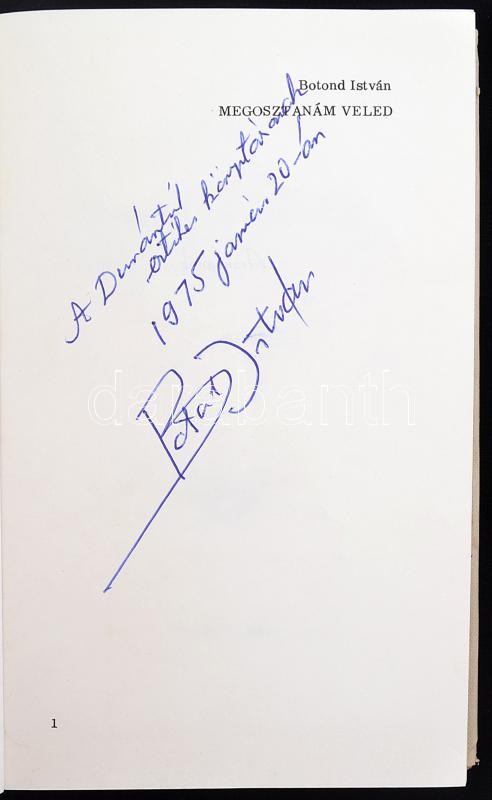 Botond István
MEGOSZTANÁM VELED
A Dunántúl
értékes könyvtárának
1975 január 20-án
Botond István
darabanth
1